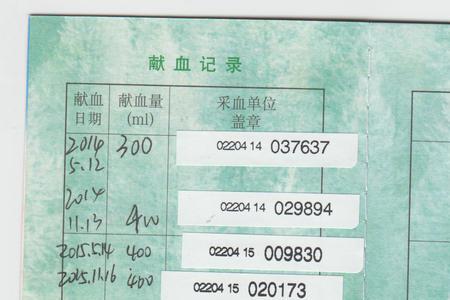 献血记录
献血日期 献血量(ml) 采血单位盖章
2014 5.12 300 02204 14 037637
2014 11.13 400 02204 14 029894
2015.5.14 400 02204 15 009830
2015.11.16 400 02204 15 020173